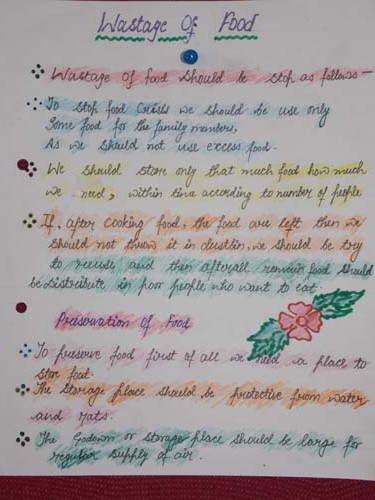 Wastage Of Food
Wastage of food should be stop as follows-
To stop food crisis we should be use only
Some food for the family members,
As we should not use excess food.
We should store only that much food how much
we need, within time according to number of people
If, after cooking food, the food are left then we
should not throw it in dustbin, we should be try
to reuse and then afterall remain food should
be distribute in poor people who want to eat.
Preservation Of Food
To preserve food first of all we need a place to
stor food.
The storage place should be protective from water
and rats.
The Godown or storage place should be large for
regular supply of air.